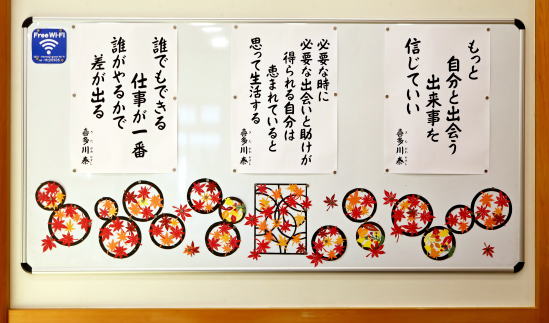 Free Wi-Fi
もっと
自分と出会う
出来事を
信じていい
喜多川 泰
必要な時に
必要な出会いと助けが
得られる自分は
恵まれていると
思って生活する
喜多川 泰
誰でもできる
仕事が一番
誰がやるかで
差が出る
喜多川 泰